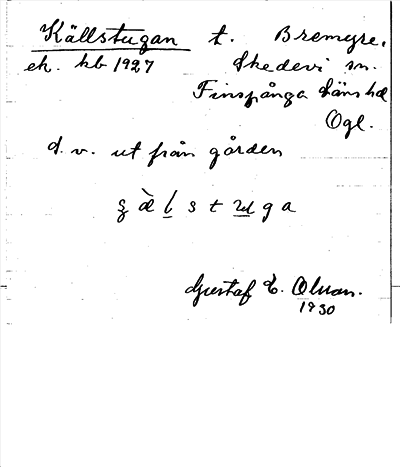 Källstugan t. Bremyre,
ek. kb 1927 Skedevi sn.
Finspånga läns hd
Ögl.
d. v. ut från gården
æ l s t u g a
Gustaf E. Olsson.
1930